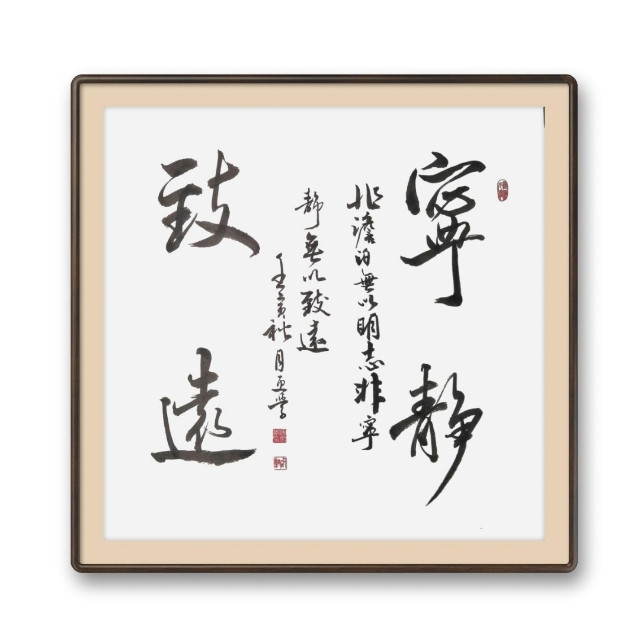 寧靜
致遠
非澹泊無以明志非寧
靜無以致遠
壬寅秋月